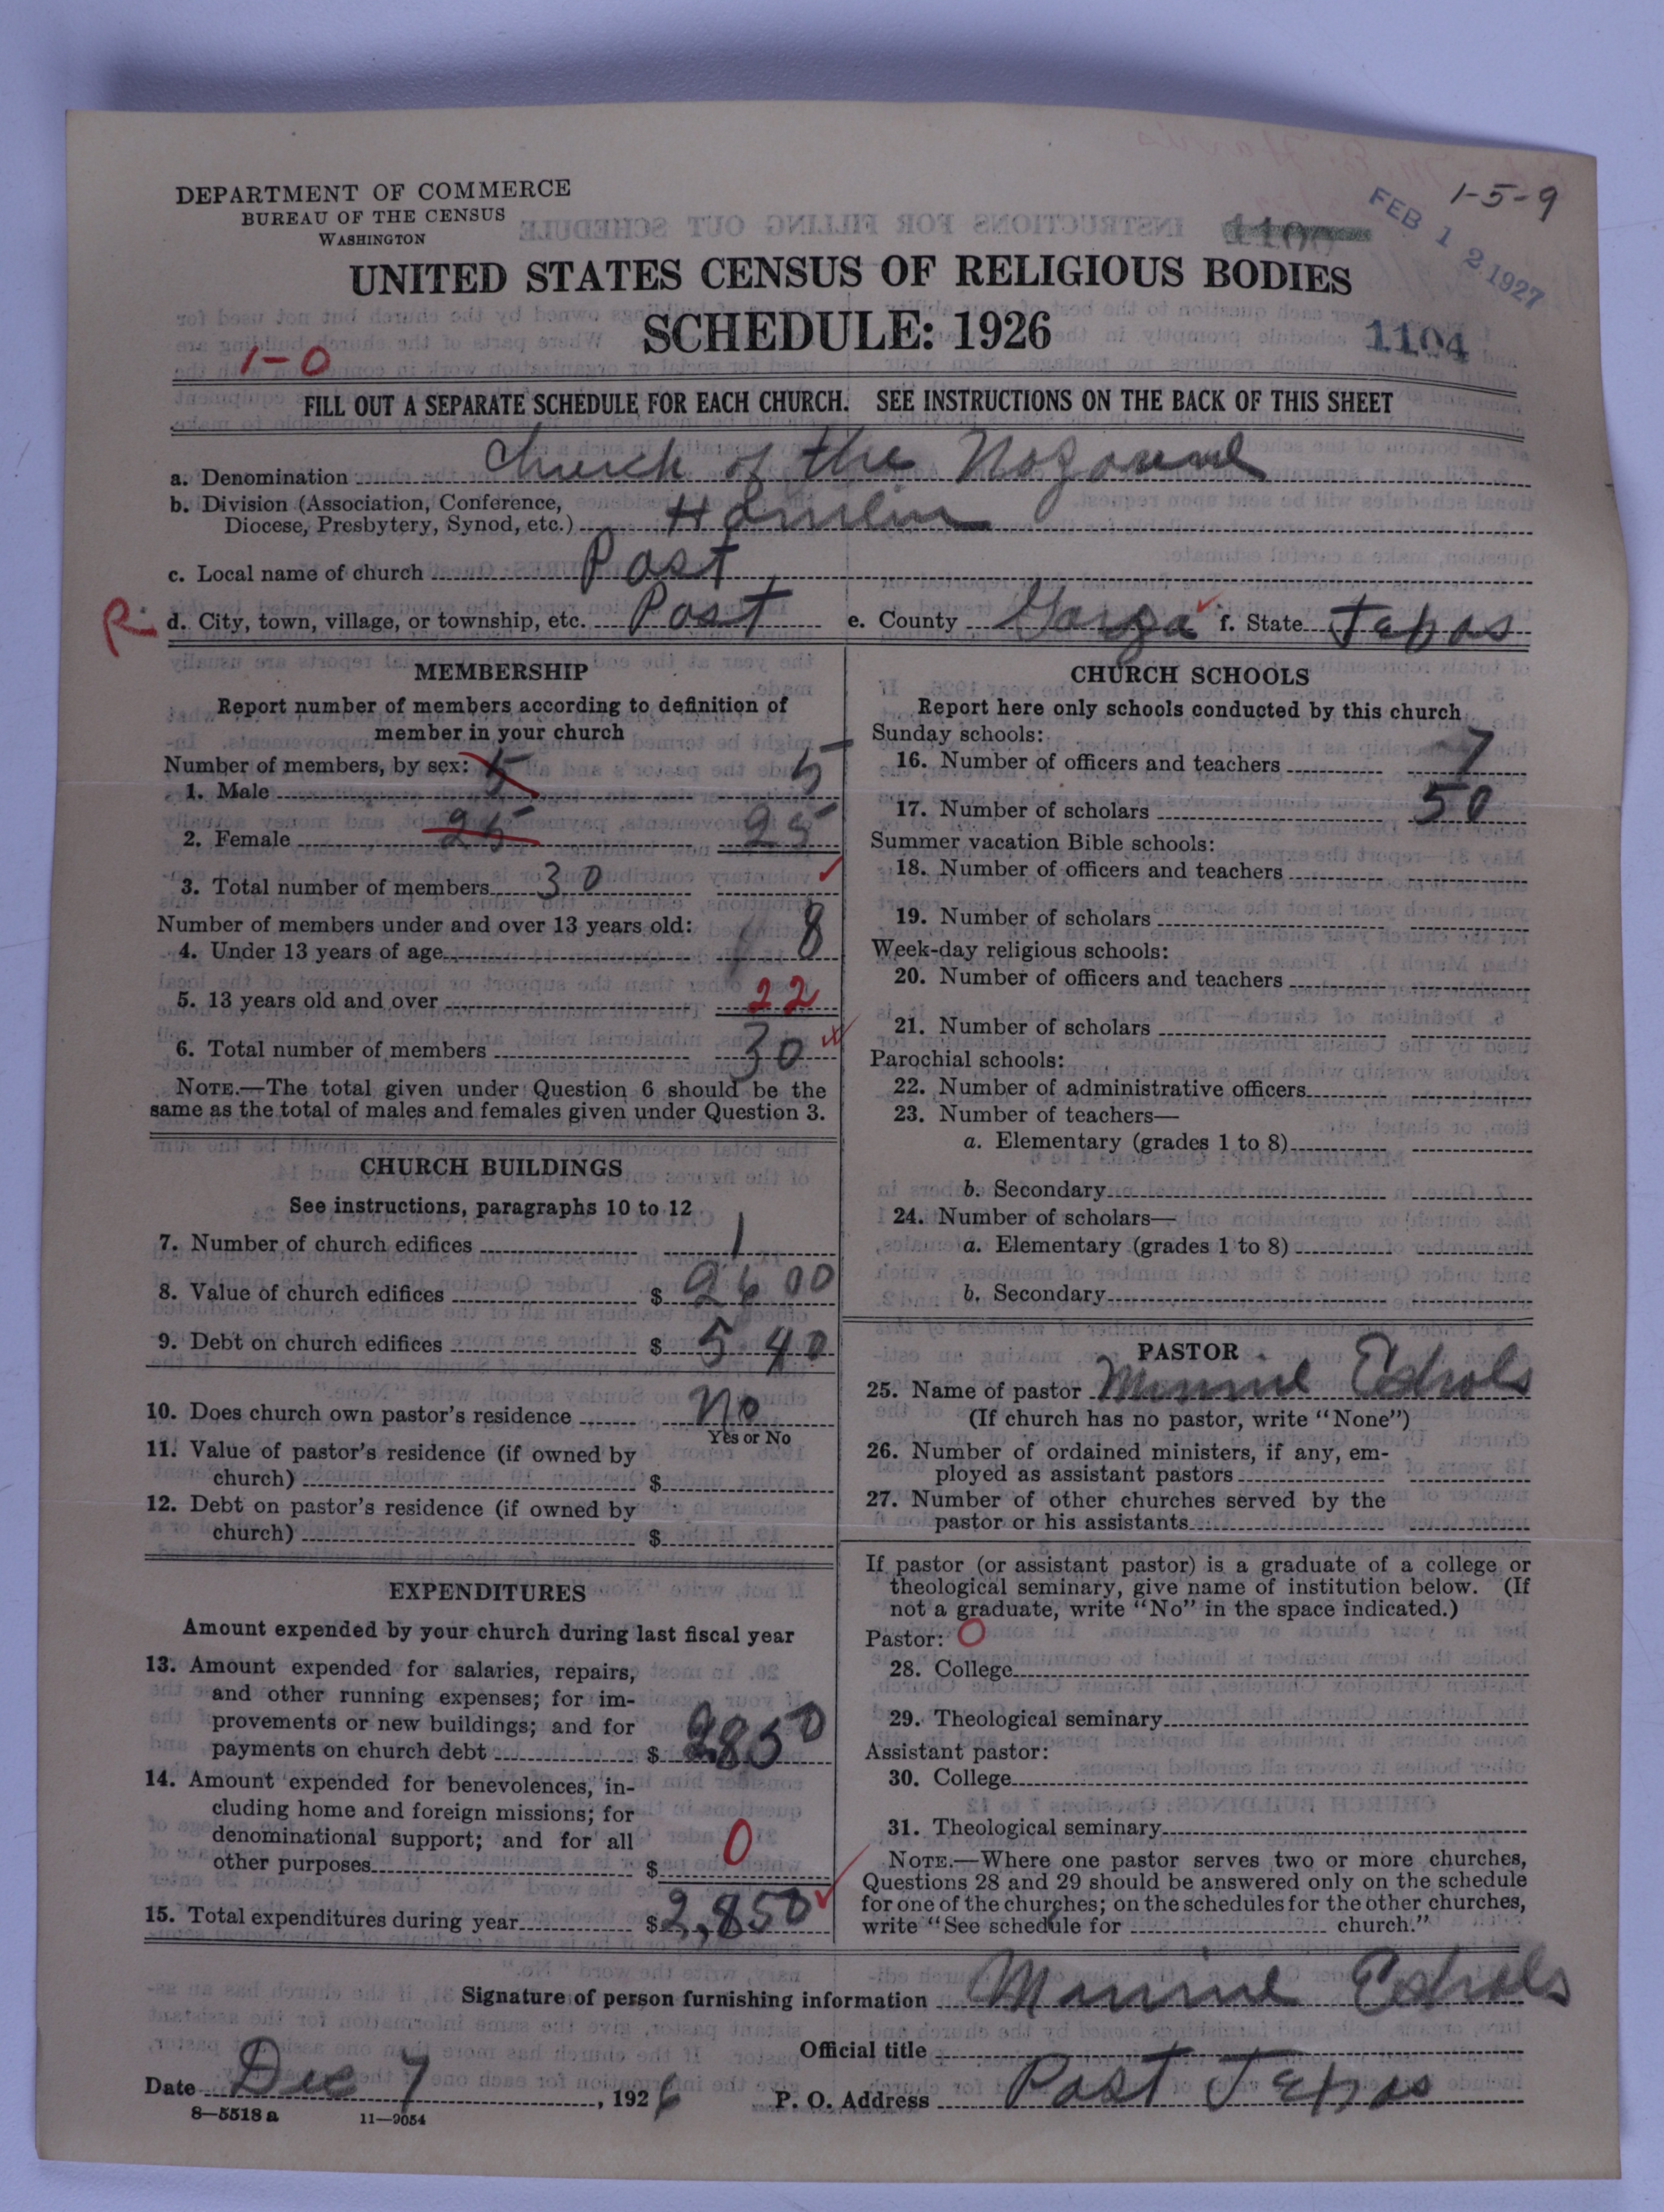 1-5-9
DEPARTMENT OF COMMERCE
BUREAU OF THE CENSUS
WASHINGTON
FEB 12 1927
UNITED STATES CENSUS OF RELIGIOUS BODIES
SCHEDULE: 1926
1104
1-0
FILL OUT A SEPARATE SCHEDULE FOR EACH CHURCH. SEE INSTRUCTIONS ON THE BACK OF THIS SHEET
a. Denomination Church of the Nazarene
b. Division (Association, Conference,
Diocese, Presbytery, Synod, etc.) Hamlin
c. Local name of church Post
R. d. City, town, village, or township, etc. Post e. County Garza f. State Texas
MEMBERSHIP
Report number of members according to definition of
member in your church
Number of members, by sex:
1. Male 5 5
2. Female 25 25
3. Total number of members 30
Number of members under and over 13 years old:
4. Under 13 years of age 8
5. 13 years old and over 22
6. Total number of members 30
NOTE.—The total given under Question 6 should be the
same as the total of males and females given under Question 3.
CHURCH BUILDINGS
See instructions, paragraphs 10 to 12
7. Number of church edifices 1
8. Value of church edifices $ 2600
9. Debt on church edifices $ 540
10. Does church own pastor's residence No
Yes or No
11. Value of pastor's residence (if owned by
church) $
12. Debt on pastor's residence (if owned by
church) $
EXPENDITURES
Amount expended by your church during last fiscal year
13. Amount expended for salaries, repairs,
and other running expenses; for im-
provements or new buildings; and for
payments on church debt $ 2850
14. Amount expended for benevolences, in-
cluding home and foreign missions; for
denominational support; and for all
other purposes $ 0
15. Total expenditures during year $ 2,850
CHURCH SCHOOLS
Report here only schools conducted by this church
Sunday schools:
16. Number of officers and teachers 7
17. Number of scholars 50
Summer vacation Bible schools:
18. Number of officers and teachers
19. Number of scholars
Week-day religious schools:
20. Number of officers and teachers
21. Number of scholars
Parochial schools:
22. Number of administrative officers
23. Number of teachers—
a. Elementary (grades 1 to 8)
b. Secondary
24. Number of scholars—
a. Elementary (grades 1 to 8)
b. Secondary
PASTOR
25. Name of pastor Minnie Echols
(If church has no pastor, write "None")
26. Number of ordained ministers, if any, em-
ployed as assistant pastors
27. Number of other churches served by the
pastor or his assistants
If pastor (or assistant pastor) is a graduate of a college or
theological seminary, give name of institution below. (If
not a graduate, write "No" in the space indicated.)
Pastor: 0
28. College
29. Theological seminary
Assistant pastor:
30. College
31. Theological seminary
NOTE.—Where one pastor serves two or more churches,
Questions 28 and 29 should be answered only on the schedule
for one of the churches; on the schedules for the other churches,
write "See schedule for church."
Signature of person furnishing information Minnie Echols
Official title
Date Dec 7, 1926 P. O. Address Post Texas
8—5518 a 11—9054